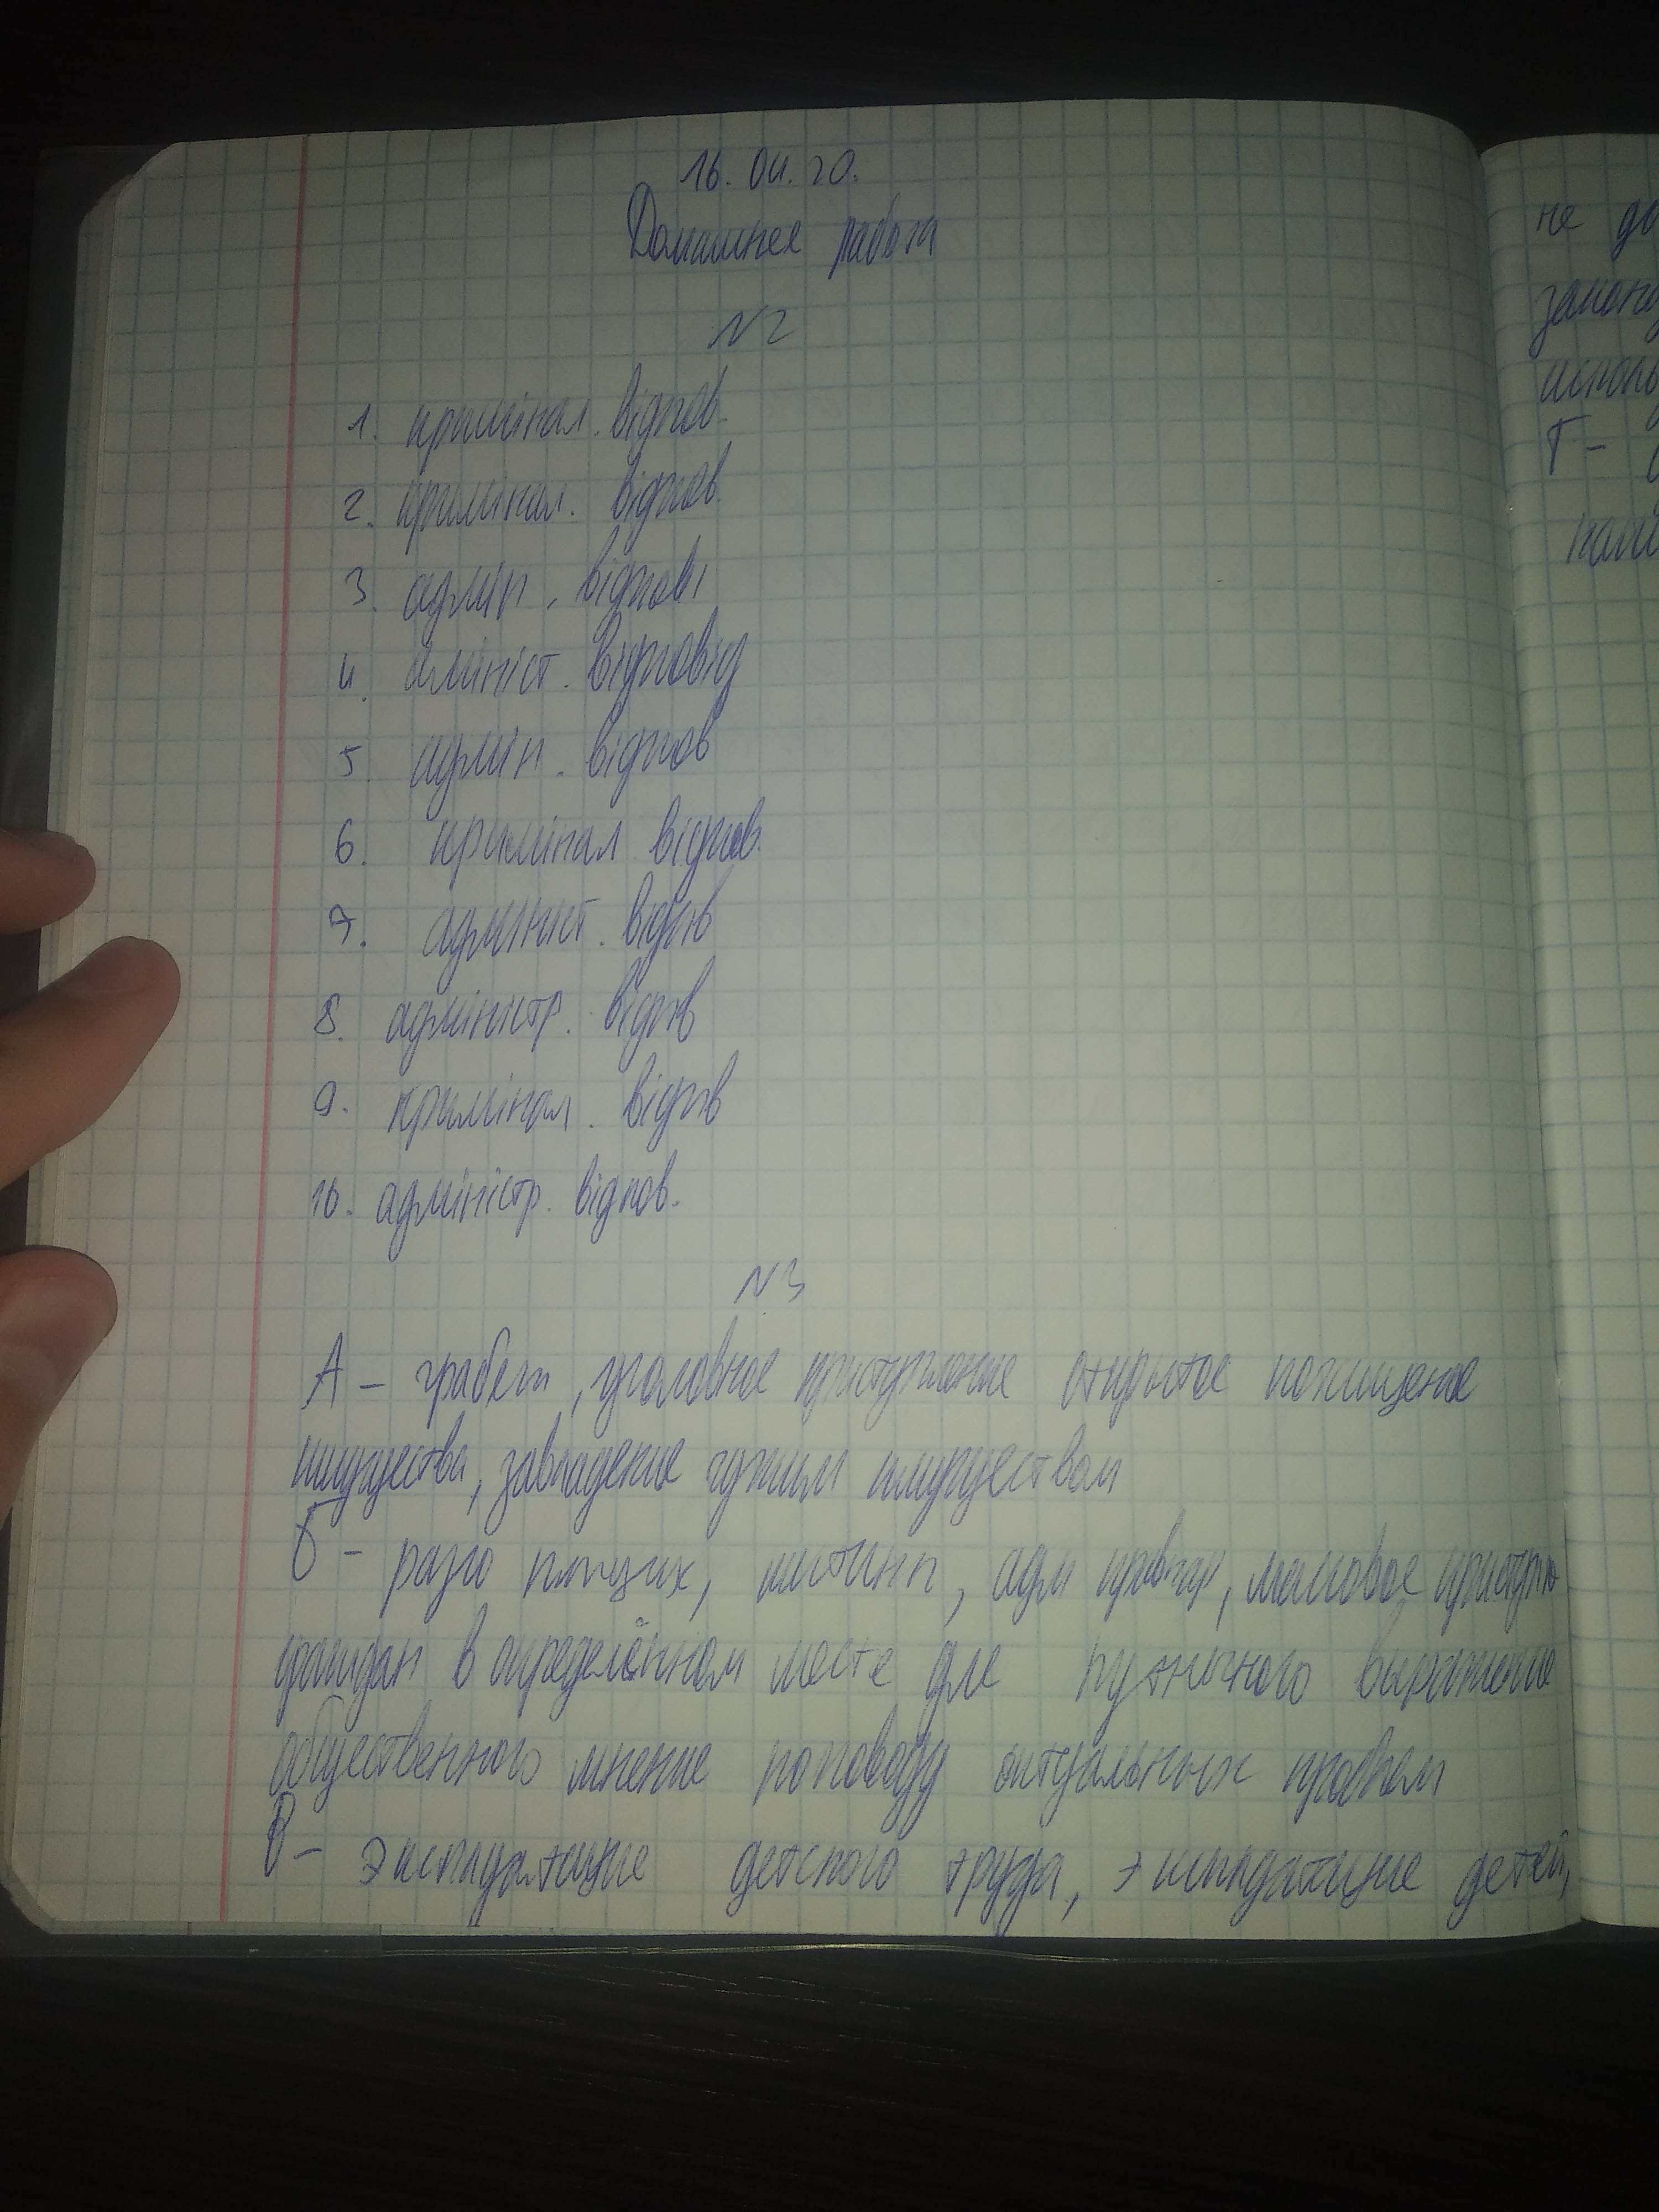 16.04.20.
Домашнея работа
N2
1. кримінал. відпов.
2. кримінал. відпов.
3. адмін. відпові
4. амініст. відповід
5. адмін. відпов
6. кримінал відпов.
7. адмініст. відпов
8. адміністр. відпов
9. кримінал. відпов
10. адміністр. відпов.
N3
А – грабеж, уголовное приступление открытое похищение
имущества, завладение чужим имуществом
Б – митинг, адм массовое
граждан в определённом месте для выражение
общественного мнение поповоду актуальных проблем
В – эксплуатацие детского труда, эксплдатацие детей,
не до
закона
исполь
Г –